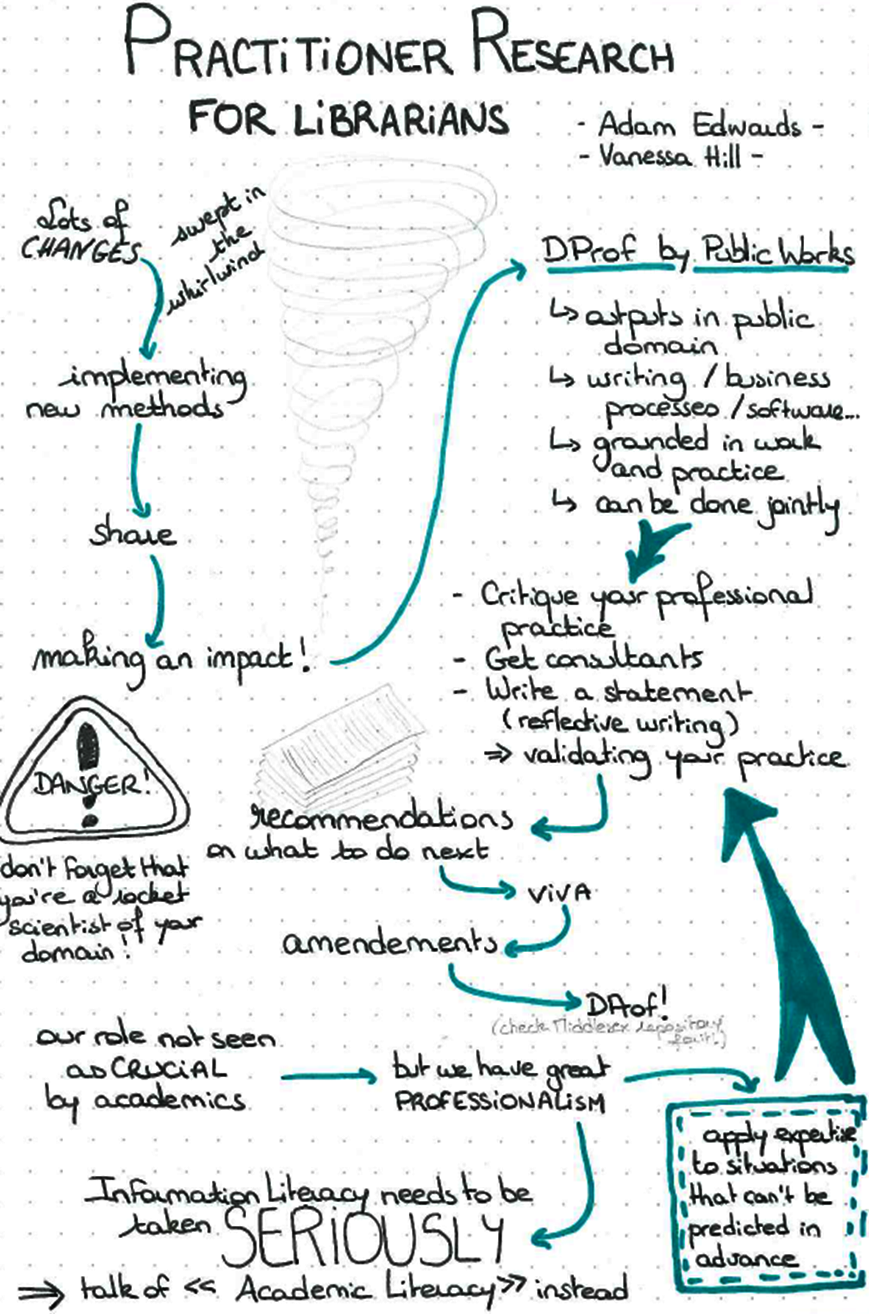 PRACTITIONER RESEARCH
FOR LIBRARIANS
- Adam Edwards -
- Vanessa Hill -
Lots of
CHANGES
swept in
the
whirlwind
implementing
new methods
share
making an impact!
DProf by Public Works
↳ outputs in public
domain
↳ writing / business
processes / software...
↳ grounded in work
and practice
↳ can be done jointly
- Critique your professional
practice
- Get consultants
- Write a statement
(reflective writing)
⇒ validating your practice
recommendations
on what to do next
VIVA
amendements
DProf!
(check Middlesex repository
for it!)
DANGER!
don't forget that
you're a rocket
scientist of your
domain!
our role not seen
as CRUCIAL
by academics
but we have great
PROFESSIONALISM
apply expertise
to situations
that can't be
predicted in
advance
Information Literacy needs to be
taken SERIOUSLY
⇒ talk of << Academic Literacy >> instead